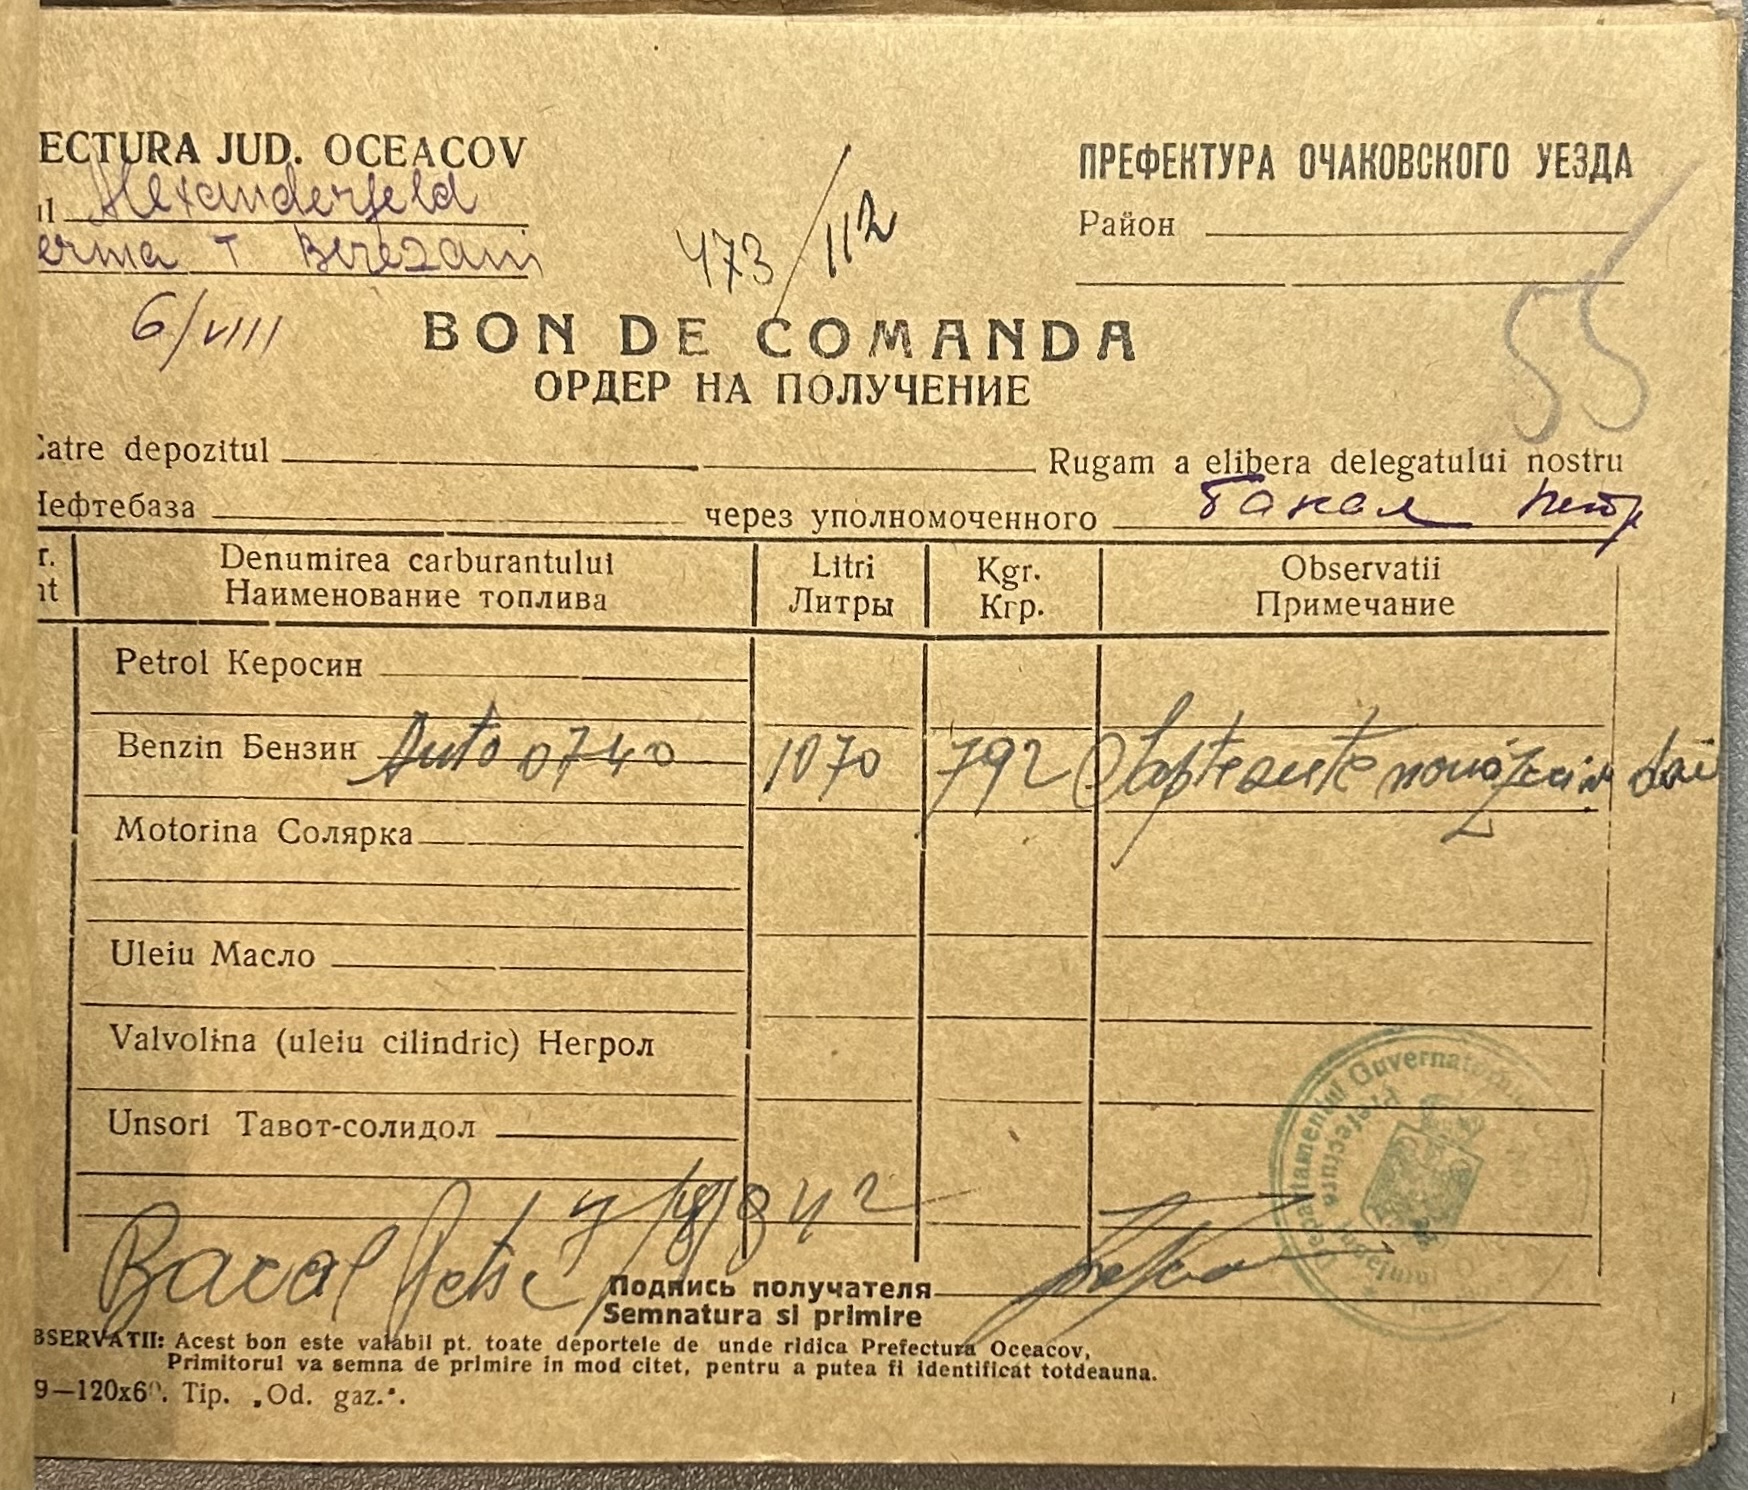 ECTURA JUD. OCEACOV
ПРЕФЕКТУРА ОЧАКОВСКОГО УЕЗДА
Alexanderfeld
Район
erma T Berezani
473/112
55
6/VIII
BON DE COMANDA
ОРДЕР НА ПОЛУЧЕНИЕ
Catre depozitul Rugam a elibera delegatului nostru
Нефтебаза через уполномоченного Бакал Петр
r. Denumirea carburantului Litri Kgr. Observatii
nt Наименование топлива Литры Кгр. Примечание
Petrol Керосин
Benzin Бензин Auto 0740 1070 792 Șaptesute nouăzeci doi
Motorina Солярка
Uleiu Масло
Valvolina (uleiu cilindric) Негрол
Unsori Тавот-солидол
Bacal Petre 7/8/942
Подпись получателя
Semnatura si primire
Departamentul Guvernatorului
Prefectura
Județului
BSERVATII: Acest bon este valabil pt. toate deportele de unde ridica Prefectura Oceacov,
Primitorul va semna de primire in mod citet, pentru a putea fi identificat totdeauna.
9—120x60. Tip. „Od. gaz.".